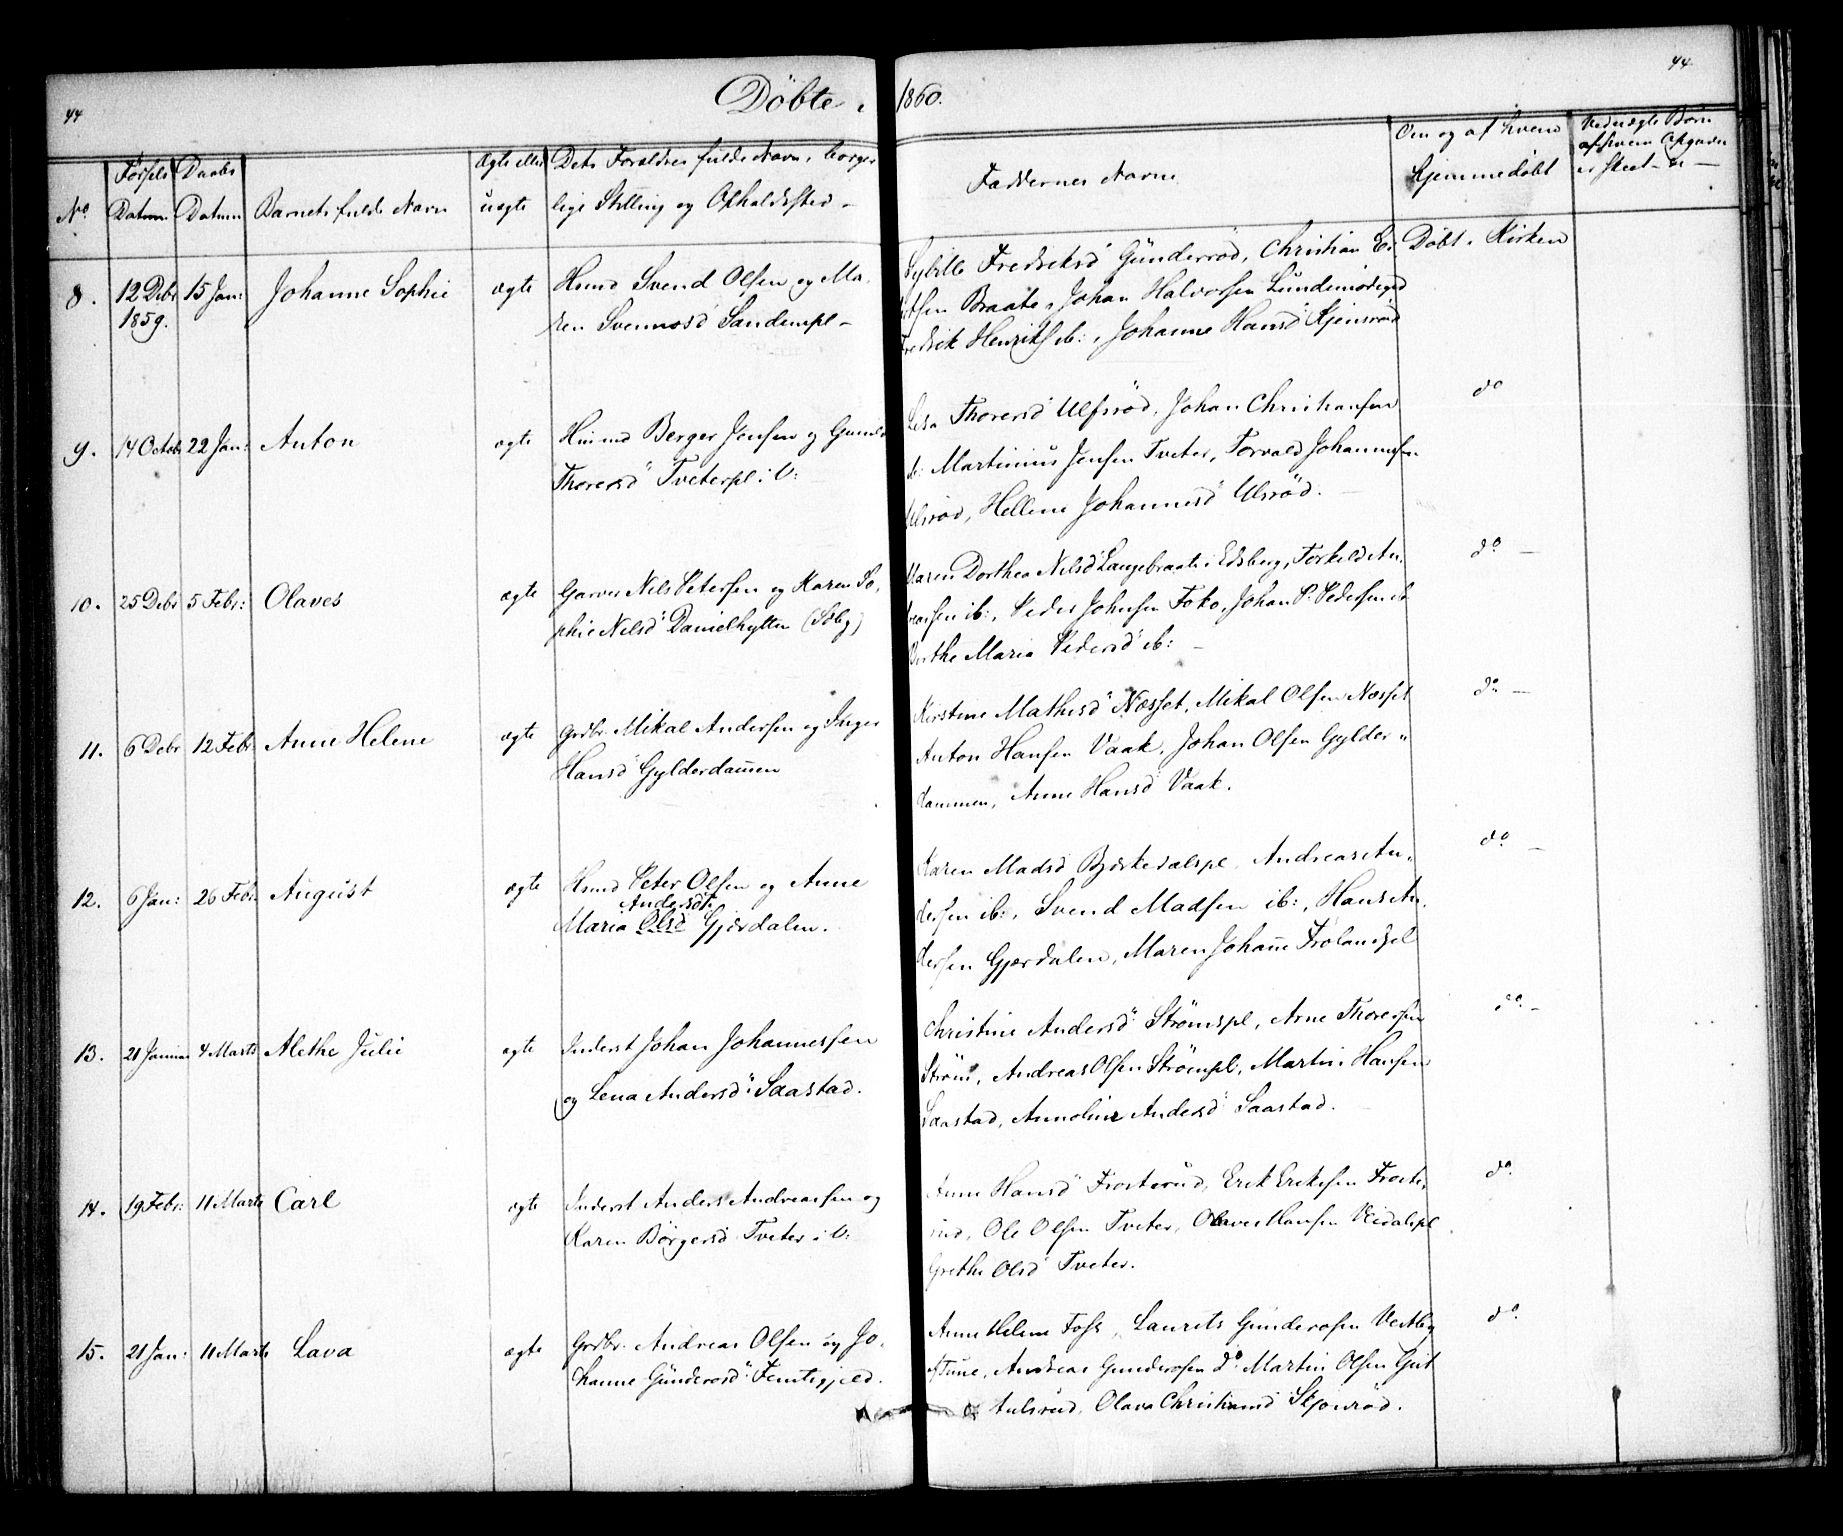 44
44
Döbte i 1860.
No.
Fødsels Datum
Daabs Datum
Barnets fulde Navn
Ægte eller uægte
Dets Forældres fulde Navn, borger
lige Stilling og Opholdssted –
Faddernes Navne
Om og af hvem
hjemmedöbt
Ved uægte Børn
af hvem Opgaven
er skeet –
8. 12 Debr 15 Jan: Johanne Sophie ægte Hsmd Svend Olsen og Ma-
1859. ren Svennsd Sandempl –
Sybille Fredriksd Günderröd, Christian Ei- Döbt i Kirken
Braate, Johan Halvorsen
Fredrik Henriks ib:, Johanne Hansd
9. 14 Octobr 22 Jan: Anton ægte Husmd Berger Jensen og Gunild
Thoresd Tveterpl: V:
Thoresd Ulfsröd, Johan Christiansen do
ib: Martinius Jensen Tveter, Torvald Johannesen
Ulsröd, Hellene Johannesd Ulsröd. –
10. 25 Debr 5 Febr: Olaves ægte Garver Nils Petersen og Karen So-
phie Nilsd Danielhytten (Söby)
Maren Dorthea Nilsd Langebraate i Edsberg, Torkild An- do –
dreassen ib:, Peder Johnsen Foko, Johan P. Pedersen ib
Berthe Maria Pedersd ib: –
11. 6 Debr 12 Febr Anne Helene ægte Grdbr. Mikal Andersen og Inger
Hansd Gylderdammen
Kirstine Mathisd Næsset, Mikal Olsen Næsset do –
Anton Hansen Vaak, Johan Olsen Gylder„
dammen, Anne Hansd Vaak.
12. 6 Jan: 26 Febr. August ægte Hsmd Peter Olsen og Anne
Andersdt.
Maria Olsd Gjærdalen.
Karen Madsd Bjerkedalspl, Andreas An- do –
dersen ib:, Svend Madsen ib:, Hans An-
dersen Gjærdalen, Maren Johanne
13. 21 Januar 4 Marts Alethe Julie ægte Inderst Johan Johannessen
og Lena Andersd Saastad.
Christine Andersd Strömspl, Arne Thoresen do –
Ström, Andreas Olsen Strömspl, Martin Hansen
Saastad, Annoline Andersd Saastad.
14. 19 Febr: 11 Marts Carl ægte Inderst Anders Andreassen og
Karen Börgersd Tveter i V:
Anne Hansd Frosterud, Erik Eriksen Froste- do.
rud, Ole Olsen Tveter, Olaves Hansen Veidalspl
Grethe Olsd Tveter.
15. 21 Jan: 11 Marts Lava ægte Grdbr. Andreas Olsen og Jo-
hanne Gundersd Femtigjeld.
Anne Helene Foss, Laurits Gundersen Vestby do.
i Tune, Andreas Gundersen do. Martin Olsen Gut
aulsrud, Olava Christiansd Skjonröd.